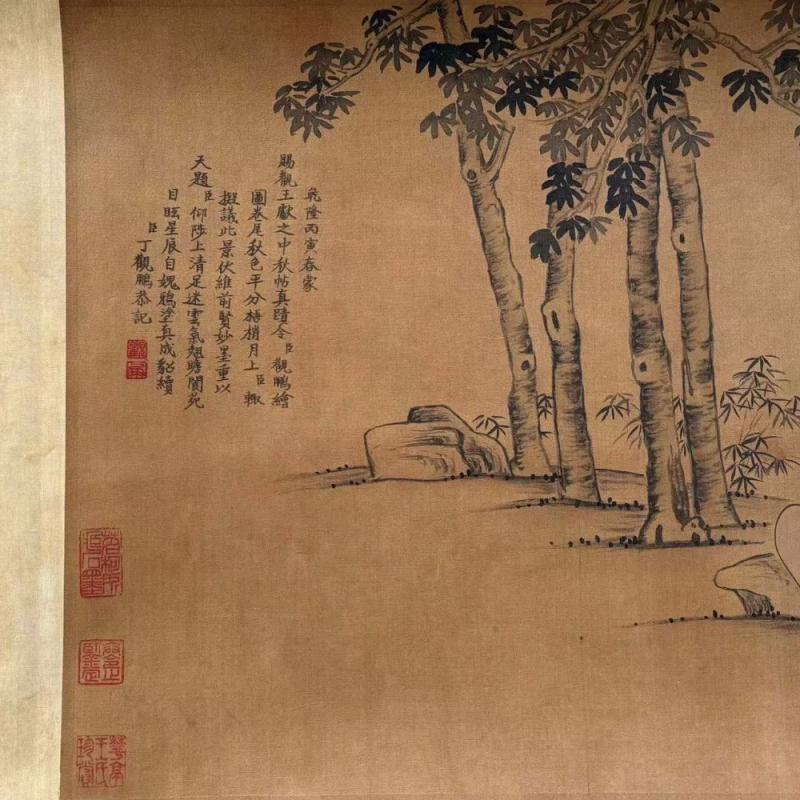 乾隆丙寅春蒙
賜觀王獻之中秋帖真蹟令臣觀鵬繪
圖卷尾秋色平分梧梢月上臣輙
擬議此景伏維前賢妙墨重以
天題臣仰陟上清足迷雲氣翹瞻閬苑
目眩星辰自媿鴉塗真成貂續
臣丁觀鵬恭記